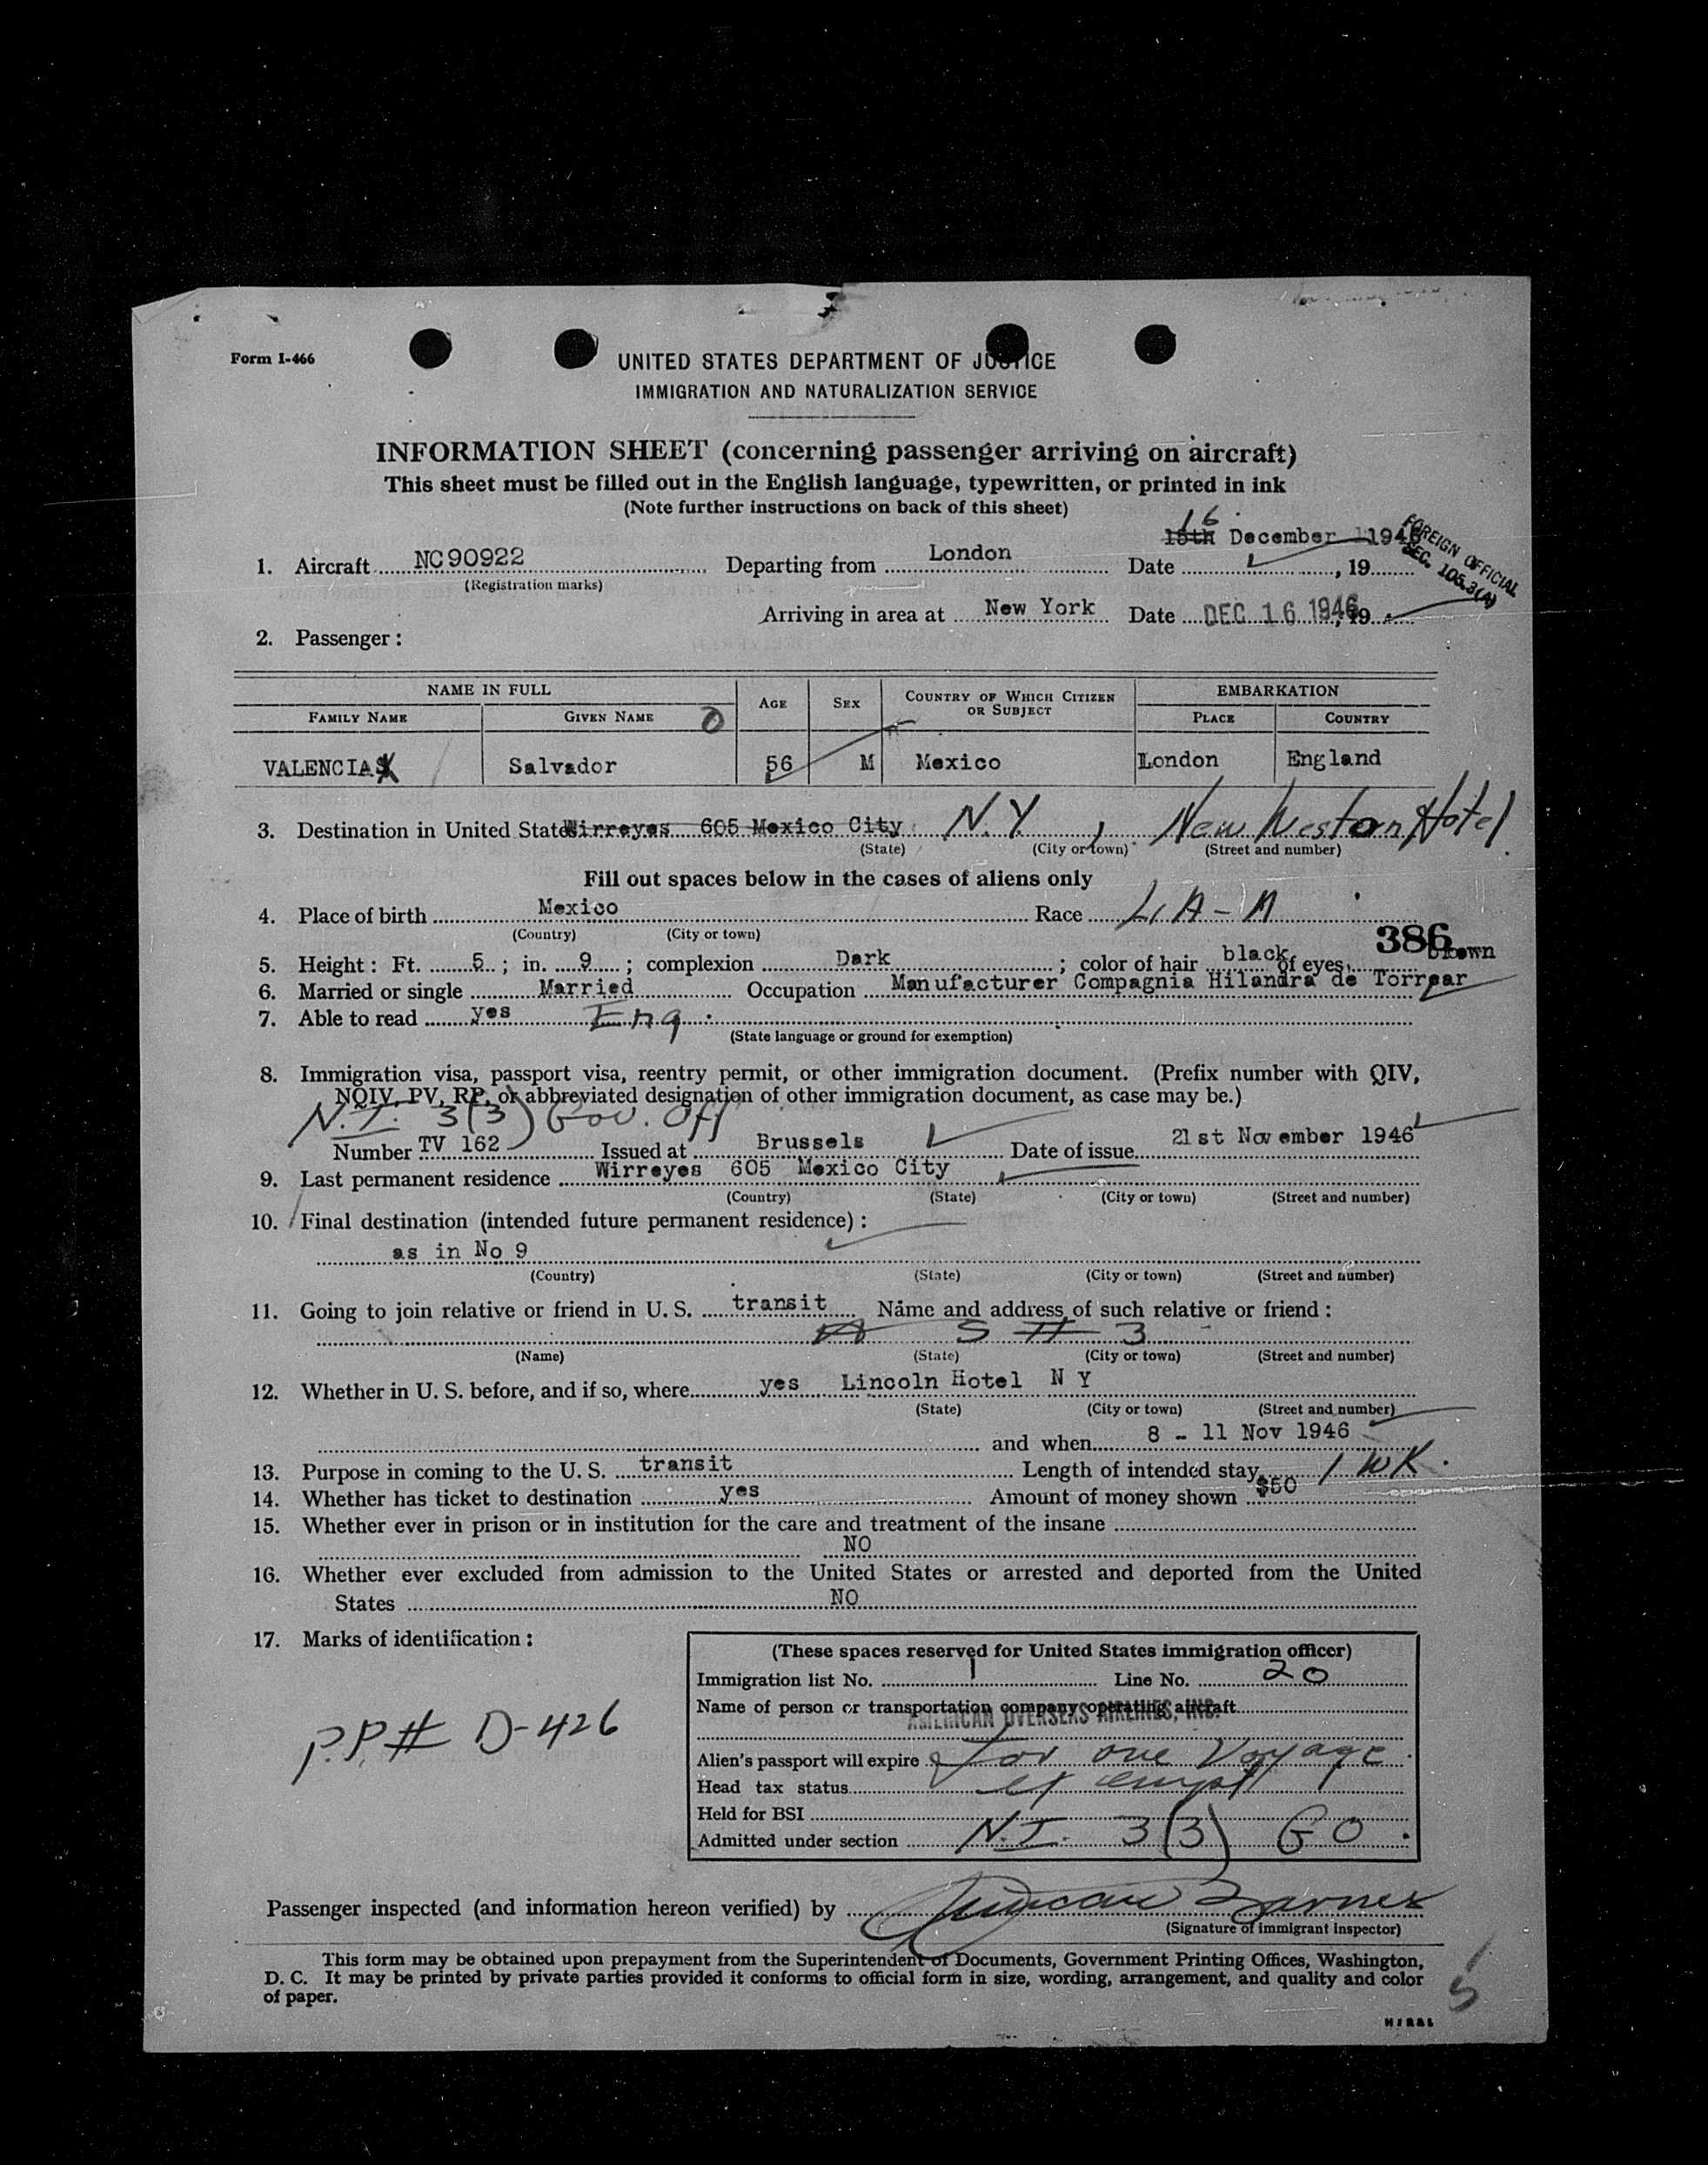 Form I-466
UNITED STATES DEPARTMENT OF JUSTICE
IMMIGRATION AND NATURALIZATION SERVICE
INFORMATION SHEET (concerning passenger arriving on aircraft)
This sheet must be filled out in the English language, typewritten, or printed in ink
(Note further instructions on back of this sheet)
16
1. Aircraft NC90922 Departing from London Date 15th December 1946, 19
(Registration marks)
FOREIGN OFFICIAL
SEC. 105.3(A)
Arriving in area at New York Date DEC 16 1946, 19
2. Passenger :
NAME IN FULL AGE SEX COUNTRY OF WHICH CITIZEN OR SUBJECT EMBARKATION
FAMILY NAME GIVEN NAME PLACE COUNTRY
VALENCIA Salvador 56 M Mexico London England
3. Destination in United States Wirreyes 605 Mexico City N.Y. , New Weston Hotel
(State) (City or town) (Street and number)
Fill out spaces below in the cases of aliens only
4. Place of birth Mexico Race L. A - M
(Country) (City or town)
386
5. Height : Ft. 5 ; in. 9 ; complexion Dark ; color of hair black of eyes brown
6. Married or single Married Occupation Manufacturer Compagnia Hilandra de Torrear
7. Able to read yes Eng.
(State language or ground for exemption)
8. Immigration visa, passport visa, reentry permit, or other immigration document. (Prefix number with QIV,
NQIV, PV, RP, or abbreviated designation of other immigration document, as case may be.)
N.I. 3(3) Gov. Off
Number TV 162 Issued at Brussels Date of issue 21st November 1946
9. Last permanent residence Wirreyes 605 Mexico City
(Country) (State) (City or town) (Street and number)
10. Final destination (intended future permanent residence) :
as in No 9
(Country) (State) (City or town) (Street and number)
11. Going to join relative or friend in U. S. transit Name and address of such relative or friend :
S # 3
(Name) (State) (City or town) (Street and number)
12. Whether in U. S. before, and if so, where yes Lincoln Hotel N Y
(State) (City or town) (Street and number)
and when 8 - 11 Nov 1946
13. Purpose in coming to the U. S. transit Length of intended stay 1 WK.
14. Whether has ticket to destination yes Amount of money shown $50
15. Whether ever in prison or in institution for the care and treatment of the insane
NO
16. Whether ever excluded from admission to the United States or arrested and deported from the United
States NO
17. Marks of identification :
P.P.# D-426
(These spaces reserved for United States immigration officer)
Immigration list No. 1 Line No. 20
Name of person or transportation company operating aircraft
AMERICAN OVERSEAS AIRLINES, INC.
Alien's passport will expire for one Voyage
Head tax status exempt
Held for BSI
Admitted under section N.I. 3(3) GO.
Passenger inspected (and information hereon verified) by Barnes
(Signature of immigrant inspector)
This form may be obtained upon prepayment from the Superintendent of Documents, Government Printing Offices, Washington,
D. C. It may be printed by private parties provided it conforms to official form in size, wording, arrangement, and quality and color
of paper.